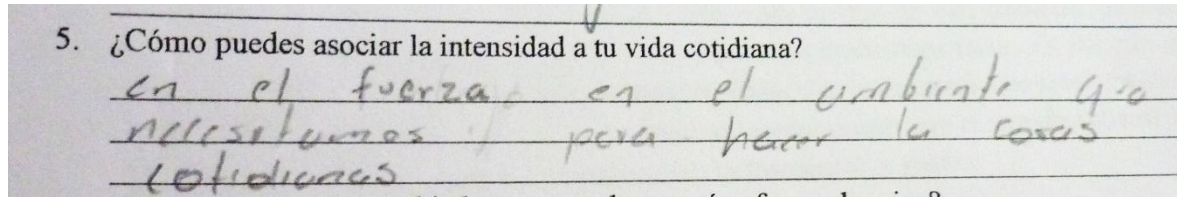 5. ¿Cómo puedes asociar la intensidad a tu vida cotidiana?
en el fuerza en el ambiente que
necesitamos para hacer la cosas
cotidianas